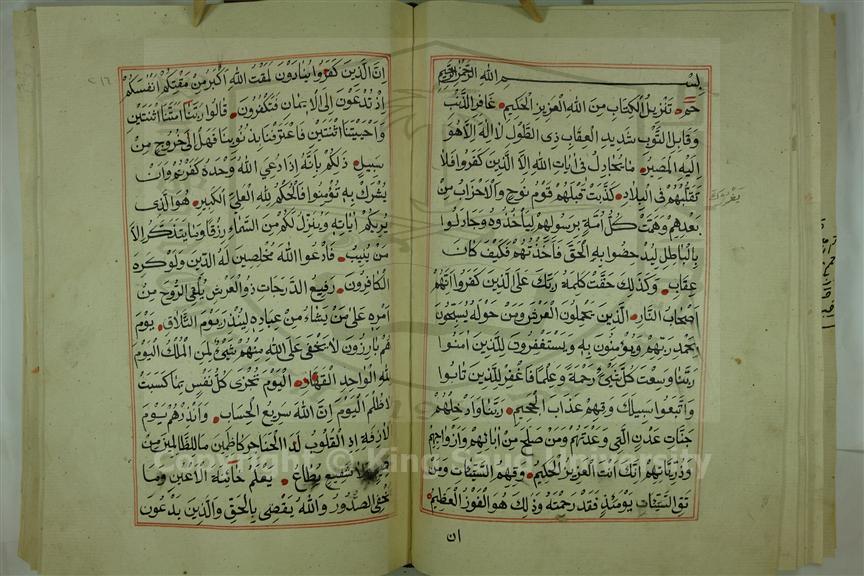 بسم الله الرحمن الرحيم
حم تنزيل الكتاب من الله العزيز الحكيم غافر الذنب
وقابل التوب شديد العقاب ذى الطول لا اله الا هو
اليه المصير ما يجادل فى ايات الله الا الذين كفروا فلا
تقلبهم فى البلاد كذبت قبلهم قوم نوح والاحزاب من
يغررك
بعدهم وهمت كل امة برسولهم ليأخذوه وجادلوا
بالباطل ليدحضوا به الحق فأخذتهم فكيف كان
عقاب وكذلك حقت كلمة ربك على الذين كفروا انهم
اصحاب النار الذين يحملون العرش ومن حوله يسبحون
بحمد ربهم ويؤمنون به ويستغفرون للذين امنوا
ربنا وسعت كل شئ رحمة وعلما فاغفر للذين تابوا
واتبعوا سبيلك وقهم عذاب الجحيم ربنا وادخلهم
جنات عدن التى وعدتهم ومن صلح من ابائهم وازواجهم
وذرياتهم انك انت العزيز الحكيم وقهم السيئات ومن
تق السيئات يومئذ فقد رحمته وذلك هو الفوز العظيم
ان
ان الذين كفروا ينادون لمقت الله اكبر من مقتكم انفسكم
اذ تدعون الى الايمان فتكفرون قالوا ربنا امتنا اثنتين
واحييتنا اثنتين فاعترفنا بذنوبنا فهل الى خروج من
سبيل ذلكم بأنه اذا دعى الله وحده كفرتم وان
يشرك به تؤمنوا فالحكم لله العلى الكبير هو الذى
يريكم اياته وينزل لكم من السماء رزقا وما يتذكر الا
من ينيب فادعوا الله مخلصين له الدين ولو كره
الكافرون رفيع الدرجات ذو العرش يلقى الروح من
امره على من يشاء من عباده لينذر يوم التلاق يوم
هم بارزون لا يخفى على الله منهم شئ لمن الملك اليوم
لله الواحد القهار اليوم تجزى كل نفس بما كسبت
لا ظلم اليوم ان الله سريع الحساب وانذرهم يوم
الازفة اذ القلوب لدا الحناجر كاظمين ما للظالمين من
ولا شفيع يطاع يعلم خائنة الاعين وما
تخفى الصدور والله يقضى بالحق والذين يدعون
Copyright © King Saud University